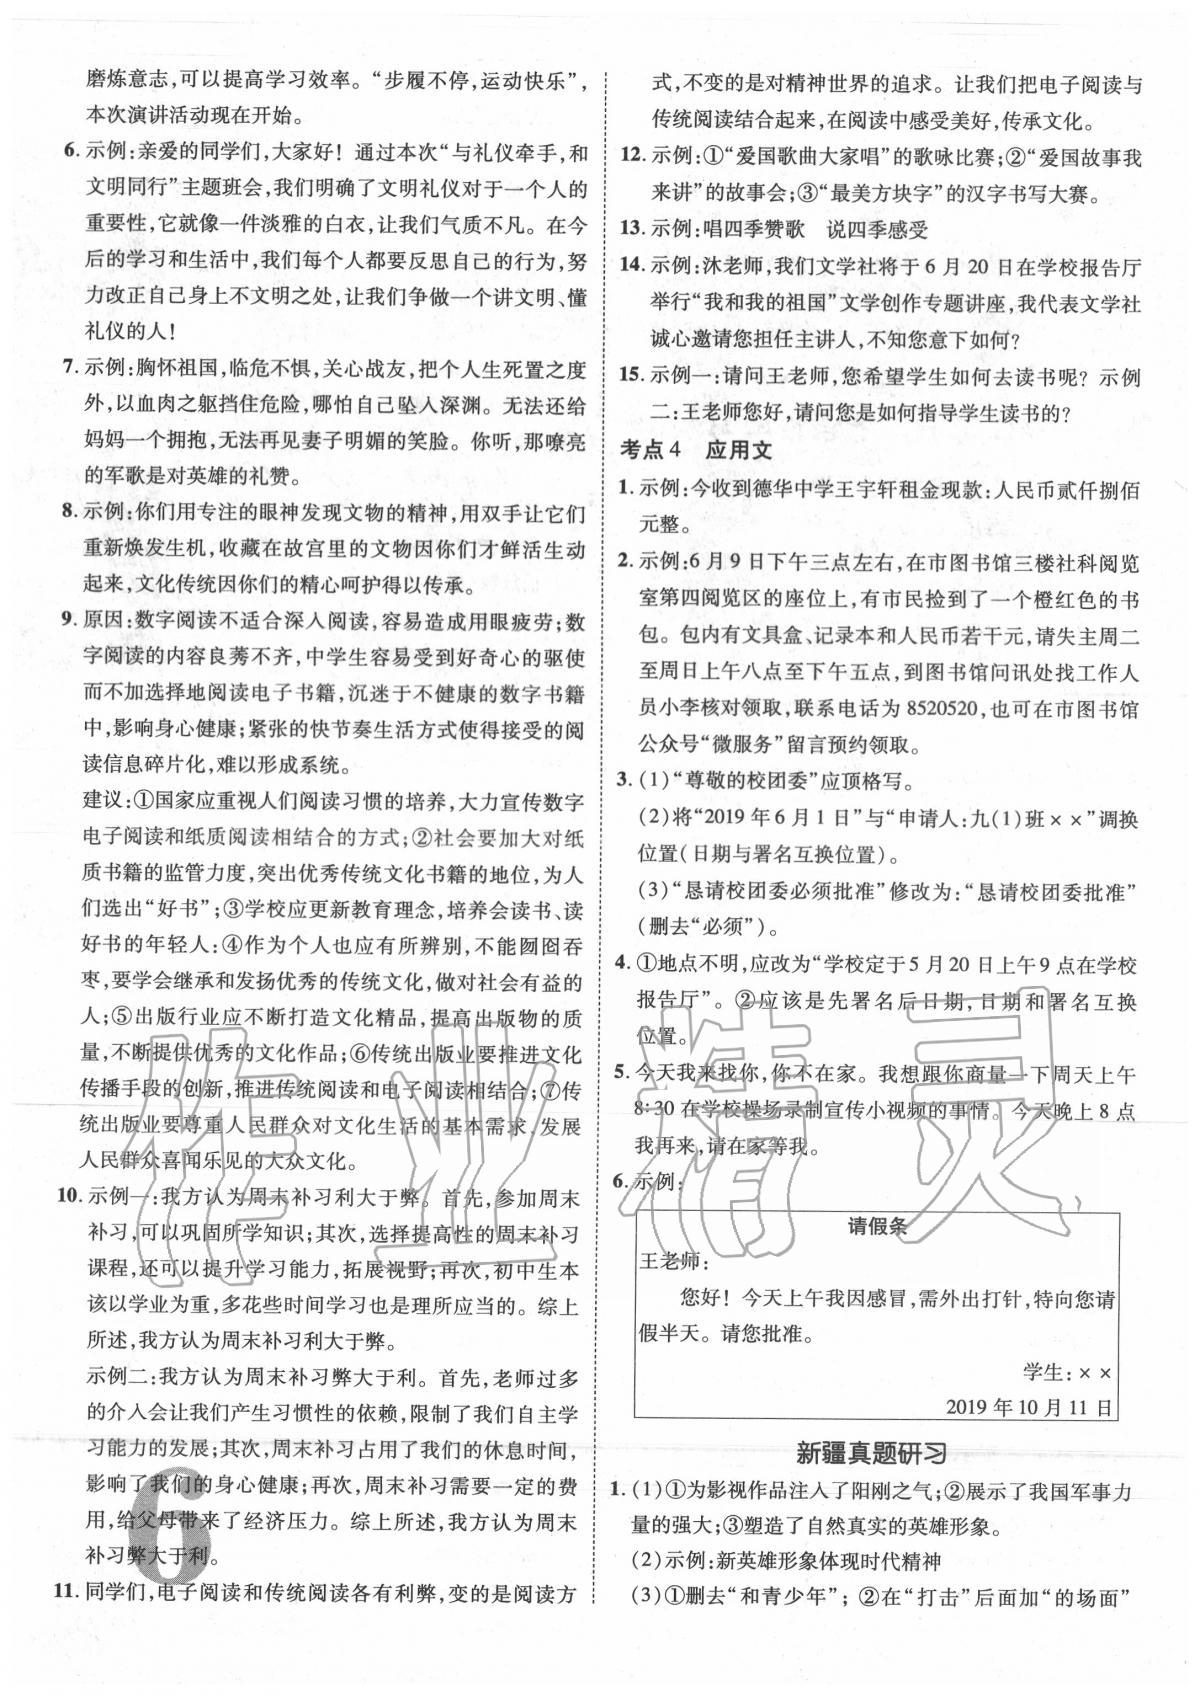 磨炼意志,可以提高学习效率。“步履不停,运动快乐”,
本次演讲活动现在开始。
6. 示例:亲爱的同学们,大家好! 通过本次“与礼仪牵手,和
文明同行”主题班会,我们明确了文明礼仪对于一个人的
重要性,它就像一件淡雅的白衣,让我们气质不凡。在今
后的学习和生活中,我们每个人都要反思自己的行为,努
力改正自己身上不文明之处,让我们争做一个讲文明、懂
礼仪的人!
7. 示例:胸怀祖国,临危不惧,关心战友,把个人生死置之度
外,以血肉之躯挡住危险,哪怕自己坠入深渊。无法还给
妈妈一个拥抱,无法再见妻子明媚的笑脸。你听,那嘹亮
的军歌是对英雄的礼赞。
8. 示例:你们用专注的眼神发现文物的精神,用双手让它们
重新焕发生机,收藏在故宫里的文物因你们才鲜活生动
起来,文化传统因你们的精心呵护得以传承。
9. 原因:数字阅读不适合深入阅读,容易造成用眼疲劳;数
字阅读的内容良莠不齐,中学生容易受到好奇心的驱使
而不加选择地阅读电子书籍,沉迷于不健康的数字书籍
中,影响身心健康;紧张的快节奏生活方式使得接受的阅
读信息碎片化,难以形成系统。
建议:①国家应重视人们阅读习惯的培养,大力宣传数字
电子阅读和纸质阅读相结合的方式;②社会要加大对纸
质书籍的监管力度,突出优秀传统文化书籍的地位,为人
们选出“好书”;③学校应更新教育理念,培养会读书、读
好书的年轻人;④作为个人也应有所辨别,不能囫囵吞
枣,要学会继承和发扬优秀的传统文化,做对社会有益的
人;⑤出版行业应不断打造文化精品,提高出版物的质
量,不断提供优秀的文化作品;⑥传统出版业要推进文化
传播手段的创新,推进传统阅读和电子阅读相结合;⑦传
统出版业要尊重人民群众对文化生活的基本需求,发展
人民群众喜闻乐见的大众文化。
10. 示例一:我方认为周末补习利大于弊。首先,参加周末
补习,可以巩固所学知识;其次,选择提高性的周末补习
课程,还可以提升学习能力,拓展视野;再次,初中生本
该以学业为重,多花些时间学习也是理所应当的。综上
所述,我方认为周末补习利大于弊。
示例二:我方认为周末补习弊大于利。首先,老师过多
的介入会让我们产生习惯性的依赖,限制了我们自主学
习能力的发展;其次,周末补习占用了我们的休息时间,
影响了我们的身心健康;再次,周末补习需要一定的费
用,给父母带来了经济压力。综上所述,我方认为周末
补习弊大于利。
11. 同学们,电子阅读和传统阅读各有利弊,变的是阅读方
6
式,不变的是对精神世界的追求。让我们把电子阅读与
传统阅读结合起来,在阅读中感受美好,传承文化。
12. 示例:①“爱国歌曲大家唱”的歌咏比赛;②“爱国故事我
来讲”的故事会;③“最美方块字”的汉字书写大赛。
13. 示例:唱四季赞歌 说四季感受
14. 示例:沐老师,我们文学社将于 6 月 20 日在学校报告厅
举行“我和我的祖国”文学创作专题讲座,我代表文学社
诚心邀请您担任主讲人,不知您意下如何?
15. 示例一:请问王老师,您希望学生如何去读书呢? 示例
二:王老师您好,请问您是如何指导学生读书的?
考点 4 应用文
1. 示例:今收到德华中学王宇轩租金现款:人民币贰仟捌佰
元整。
2. 示例:6 月 9 日下午三点左右,在市图书馆三楼社科阅览
室第四阅览区的座位上,有市民捡到了一个橙红色的书
包。包内有文具盒、记录本和人民币若干元,请失主周二
至周日上午八点至下午五点,到图书馆问讯处找工作人
员小李核对领取,联系电话为 8520520,也可在市图书馆
公众号“微服务”留言预约领取。
3. (1)“尊敬的校团委”应顶格写。
(2)将“2019 年 6 月 1 日”与“申请人:九(1)班××”调换
位置(日期与署名互换位置)。
(3)“恳请校团委必须批准”修改为:“恳请校团委批准”
(删去“必须”)。
4. ①地点不明,应改为“学校定于 5 月 20 日上午 9 点在学校
报告厅”。②应该是先署名后日期,日期和署名互换
位置。
5. 今天我来找你,你不在家。我想跟你商量一下周天上午
8:30 在学校操场录制宣传小视频的事情。今天晚上 8 点
我再来,请在家等我。
6. 示例:
请假条
王老师:
您好! 今天上午我因感冒,需外出打针,特向您请
假半天。请您批准。
学生:××
2019 年 10 月 11 日
新疆真题研习
1. (1)①为影视作品注入了阳刚之气;②展示了我国军事力
量的强大;③塑造了自然真实的英雄形象。
(2)示例:新英雄形象体现时代精神
(3)①删去“和青少年”; ②在“打击”后面加“的场面”
作业精灵